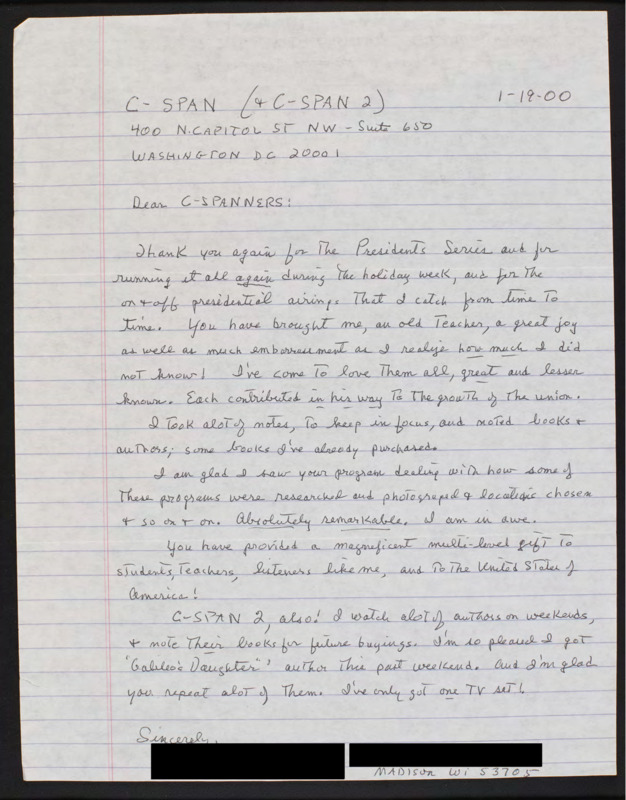 C-SPAN (& C-SPAN 2) 1-19-00
400 N. CAPITOL ST NW - Suite 650
WASHINGTON DC 20001
Dear C-SPANNERS:
Thank you again for the Presidents Series and for
running it all again during the holiday week, and for the
on & off presidential airings that I catch from time to
time. You have brought me, an old teacher, a great joy
as well as much embarressment as I realize how much I did
not know! I've come to love them all, great and lesser
known. Each contributed in his way to the growth of the union.
I took alot of notes, to keep in focus, and noted books &
authors; some books I've already purchased.
I am glad I saw your program dealing with how some of
these programs were researched and photograped & locations chosen
& so on & on. Absolutely remarkable. I am in awe.
You have provided a magnificent multi-level gift to
students, teachers, listeners like me, and to the United States of
America!
C-SPAN 2, also! I watch alot of authors on weekends,
& note their books for future buyings. I'm so pleased I got
"Galileo's Daughter"' author this past weekend. And I'm glad
you repeat alot of them. I've only got one TV set!
Sincerely,
MADISON WI 53705